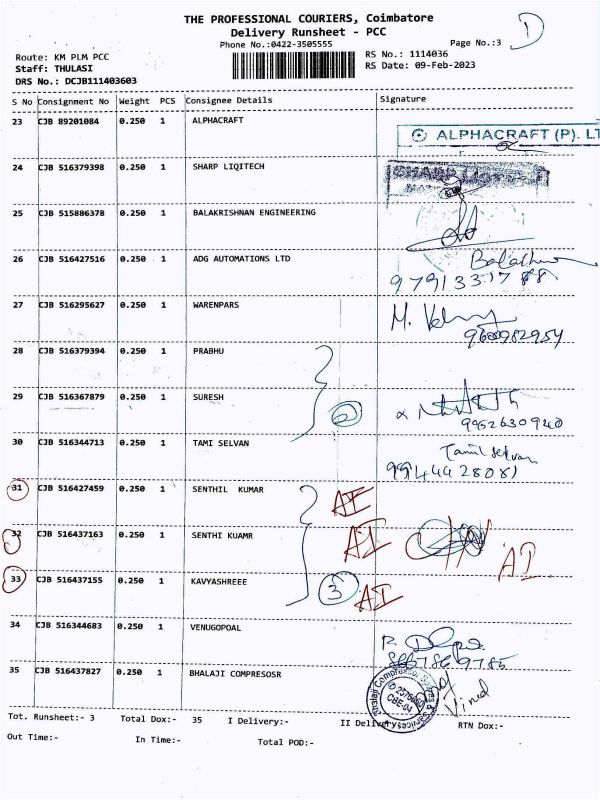 THE PROFESSIONAL COURIERS, Coimbatore
Delivery Runsheet - PCC
Phone No.:0422-3505555
Page No.:3
D
Route: KM PLM PCC
Staff: THULASI
DRS No.: DCJB111403603
RS No.: 1114036
RS Date: 09-Feb-2023
S No Consignment No Weight PCS Consignee Details Signature
23 CJB 89201084 0.250 1 ALPHACRAFT
ALPHACRAFT (P). LT
24 CJB 516379398 0.250 1 SHARP LIQITECH
SHARP
25 CJB 515886378 0.250 1 BALAKRISHNAN ENGINEERING
26 CJB 516427516 0.250 1 ADG AUTOMATIONS LTD
27 CJB 516295627 0.250 1 WARENPARS
M.
9600982954
28 CJB 516379394 0.250 1 PRABHU
29 CJB 516367879 0.250 1 SURESH
2
9952630940
30 CJB 516344713 0.250 1 TAMI SELVAN
Tamil selvan
9944428081
31 CJB 516427459 0.250 1 SENTHIL KUMAR
AI
32 CJB 516437163 0.250 1 SENTHI KUAMR
AI
AI
33 CJB 516437155 0.250 1 KAVYASHREEE
3
AI
34 CJB 516344683 0.250 1 VENUGOPOAL
35 CJB 516437827 0.250 1 BHALAJI COMPRESOSR
Vinod
CBE-04
Tot. Runsheet:- 3 Total Dox:- 35 I Delivery:- II Delivery:- RTN Dox:-
Out Time:- In Time:- Total POD:-